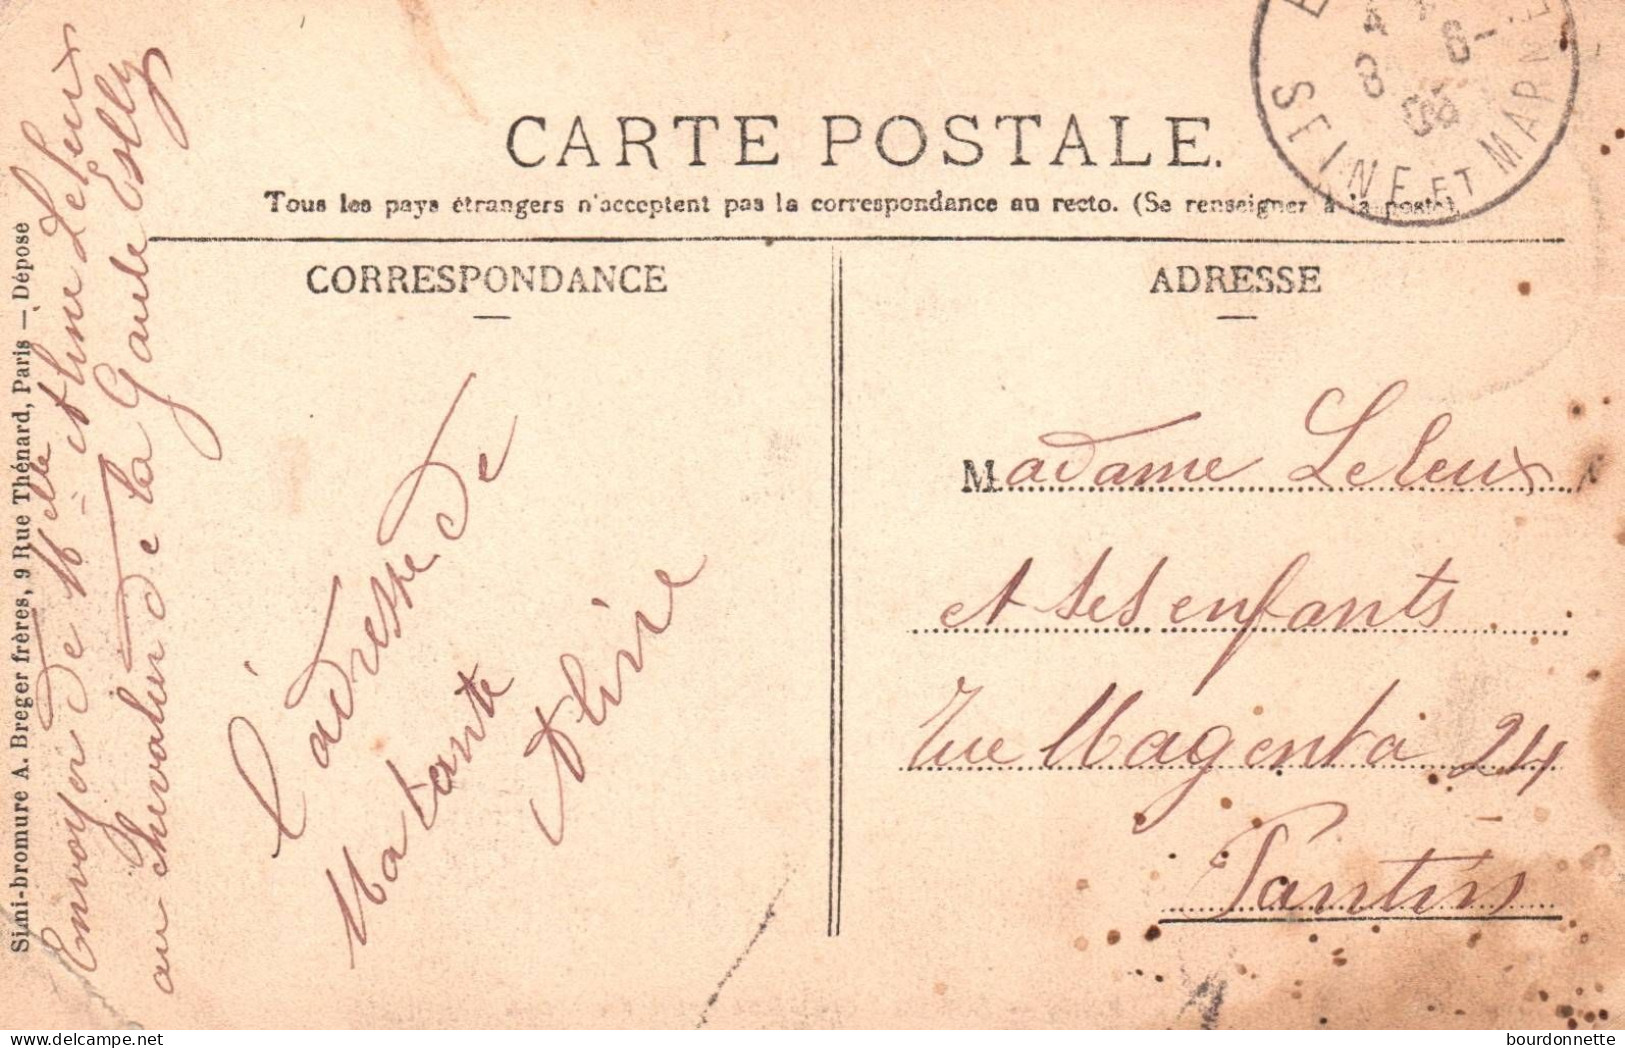 CARTE POSTALE.
Tous les pays étrangers n'acceptent pas la correspondance au recto. (Se renseigner à la poste)
SEINE ET MARNE
CORRESPONDANCE
ADRESSE
l'adresse de
Ma tante
Aline
Madame Leleux
et ses enfants
rue Magenta 24
Pantin
Envoyer de Melle Aline Leleux
au chevalier de la Gaule Esbly
Simi-bromure A. Breger frères, 9 Rue Thénard, Paris — Déposé
bourdonnette